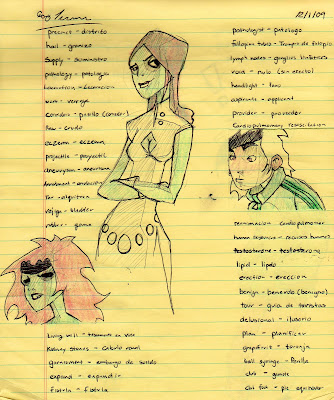 12/1/09
precinct - distrito
hail - granizo
supply - suministro
pathology - patología
locomotion - locomoción
wart - verruga
corridor - pasillo (corredor)
raw - crudo
eczema - eczema
projectile - proyectil
aneurysm - aneurisma
Tar - alquitran
vejiga - bladder
rubber - goma
Living will - Testamento en vida
Kidney stones - Cálculo renal
garnishment - embargo de sueldo
expand - expandir
fistula - fístula
pathologist - patologo
fallopian tubes - Trompa de falopio
lymph nodes - ganglios linfáticos
void - nulo (sin efecto)
headlight - faro
aspirante - applicant
provider - proveedor
Cardiopulmonary resuscitation
reanimación cardiopulmonar
human resources - recursos humanos
testosterone - testosterona
lipid - lipido
erection - ereccion
benign - benevolo (benigno)
tour - guía de turistas
delusional - ilusorio
plan - planificar
grapefruit - toronja
ball syringe - Perilla
club foot - pie equinovaro